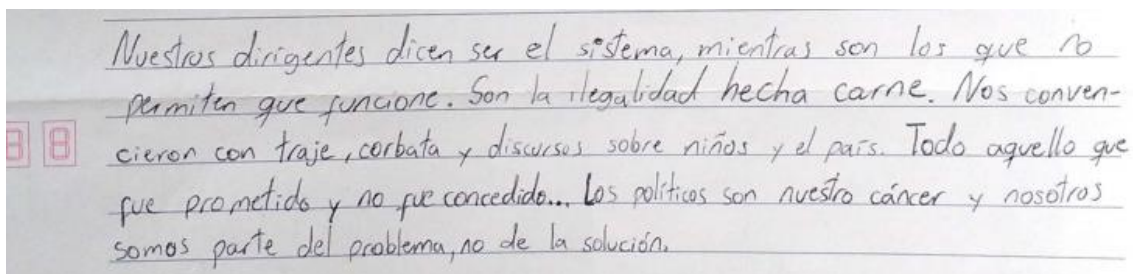 Nuestros dirigentes dicen ser el sistema, mientras son los que no
permiten que funcione. Son la ilegalidad hecha carne. Nos conven-
cieron con traje, corbata y discursos sobre niños y el país. Todo aquello que
fue prometido y no fue concedido... Los políticos son nuestro cáncer y nosotros
somos parte del problema, no de la solución.